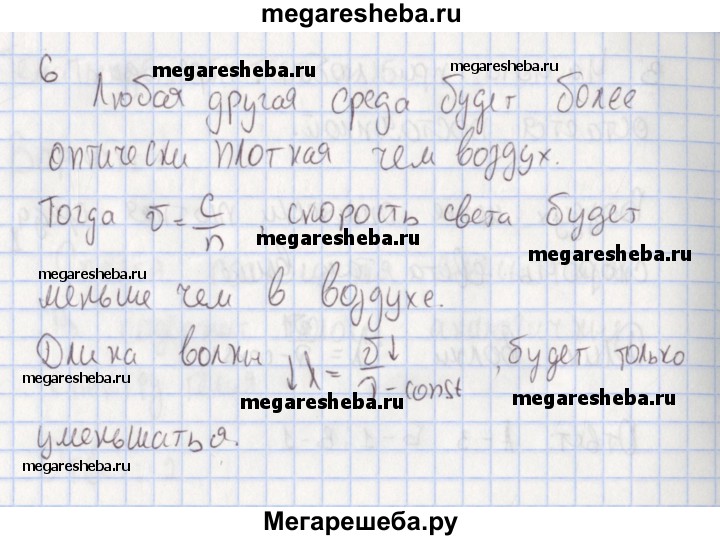 megaresheba.ru
6
megaresheba.ru
megaresheba.ru
Любая другая среда будет более
оптически плотная чем воздух.
Тогда υ = c/n , скорость света будет
megaresheba.ru
megaresheba.ru
megaresheba.ru
меньше чем в воздухе.
Длина волны ↓λ = υ↓/ν - const , будет только
megaresheba.ru
megaresheba.ru
megaresheba.ru
уменьшаться.
megaresheba.ru
megaresheba.ru
Мегарешеба.ру